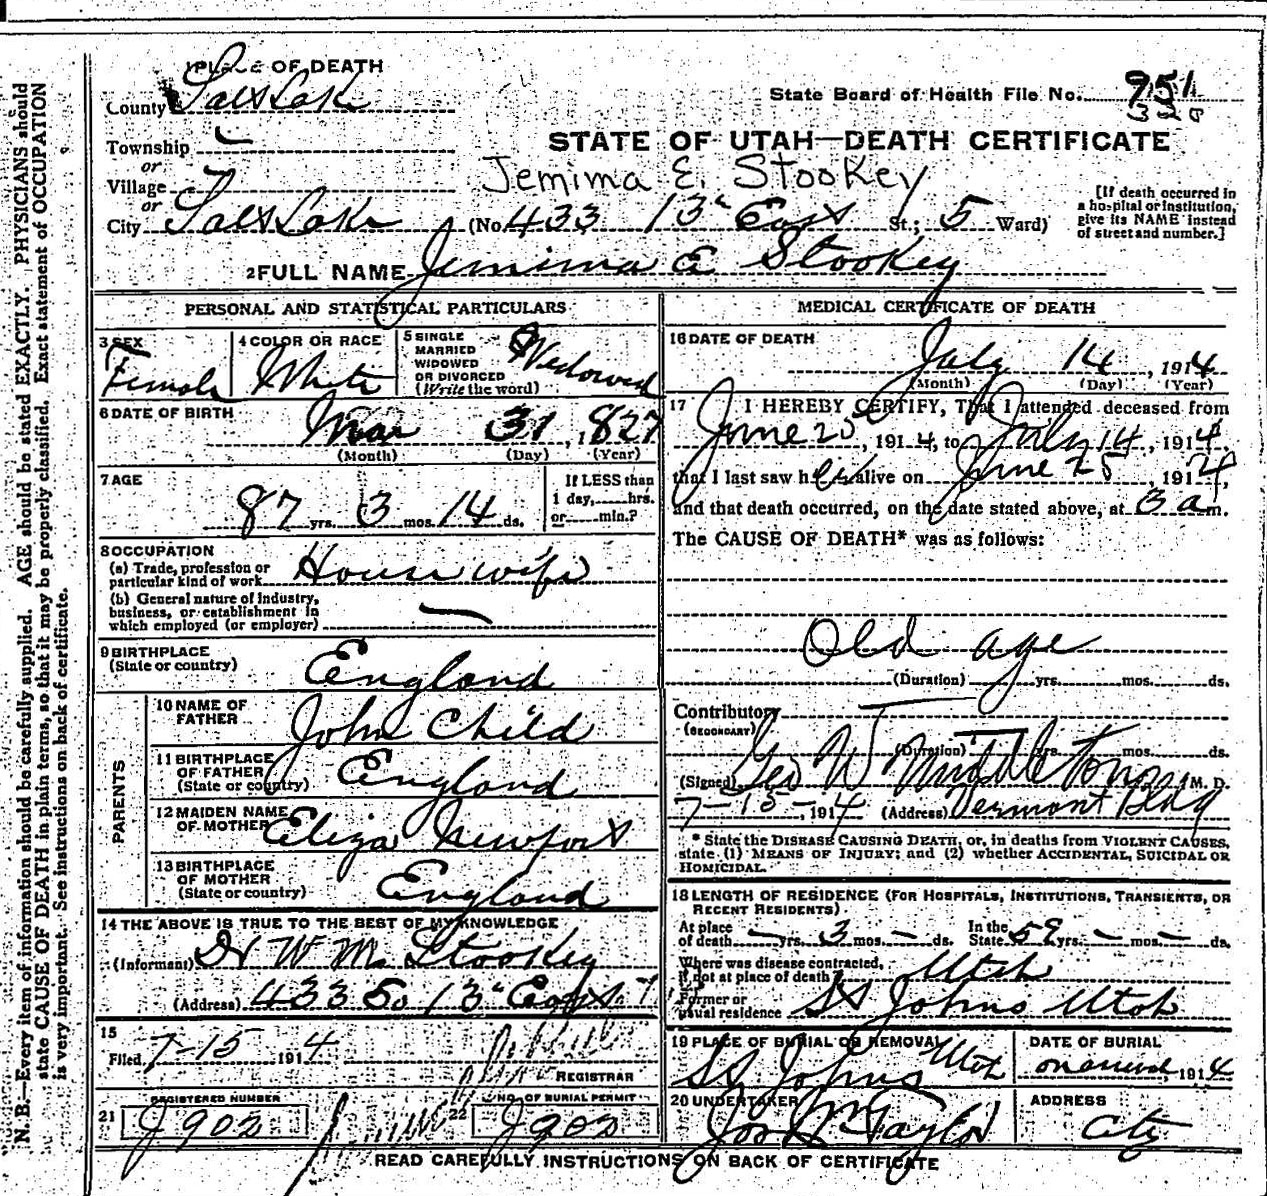 PLACE OF DEATH
County Salt Lake
State Board of Health File No. 951
320
STATE OF UTAH—DEATH CERTIFICATE
Township
or
Village
Jemima E. Stookey
or
City Salt Lake (No. 433 13" East St.; 5 Ward)
[If death occurred in
a hospital or institution,
give its NAME instead
of street and number.]
2 FULL NAME Jemima E Stookey
PERSONAL AND STATISTICAL PARTICULARS
3 SEX
Female
4 COLOR OR RACE
White
5 SINGLE
MARRIED
WIDOWED
OR DIVORCED
(Write the word)
Widowed
6 DATE OF BIRTH
Mar 31, 1827
(Month) (Day) (Year)
7 AGE
87 yrs. 3 mos. 14 ds.
If LESS than
1 day, hrs.
or min.?
8 OCCUPATION
(a) Trade, profession or
particular kind of work House wife
(b) General nature of industry,
business, or establishment in
which employed (or employer)
9 BIRTHPLACE
(State or country)
England
PARENTS
10 NAME OF
FATHER
John Child
11 BIRTHPLACE
OF FATHER
(State or country)
England
12 MAIDEN NAME
OF MOTHER
Eliza Newport
13 BIRTHPLACE
OF MOTHER
(State or country)
England
14 THE ABOVE IS TRUE TO THE BEST OF MY KNOWLEDGE
(Informant) Dr W M. Stookey
(Address) 433 So 13" East.
15
Filed 7-15 1914
REGISTRAR
21 REGISTERED NUMBER
J 902
22 NO. OF BURIAL PERMIT
J 902
MEDICAL CERTIFICATE OF DEATH
16 DATE OF DEATH
July 14, 1914
(Month) (Day) (Year)
17 I HEREBY CERTIFY, That I attended deceased from
June 25, 1914, to July 14, 1914,
that I last saw her alive on June 25 1914,
and that death occurred, on the date stated above, at 3 a m.
The CAUSE OF DEATH* was as follows:
Old age
(Duration) yrs. mos. ds.
Contributory
(SECONDARY)
(Duration) yrs. mos. ds.
(Signed) Geo W Middleton M. D.
7-15-, 1914 (Address) Vermont Bldg
* State the DISEASE CAUSING DEATH, or, in deaths from VIOLENT CAUSES,
state (1) MEANS OF INJURY; and (2) whether ACCIDENTAL, SUICIDAL OR
HOMICIDAL.
18 LENGTH OF RESIDENCE (FOR HOSPITALS, INSTITUTIONS, TRANSIENTS, OR
RECENT RESIDENTS)
At place
of death — yrs. 3 mos. — ds.
In the
State 59 yrs. — mos. — ds.
Where was disease contracted,
if not at place of death? Utah
Former or
usual residence St Johns Utah
19 PLACE OF BURIAL OR REMOVAL
St Johns Utah
DATE OF BURIAL
on arrival, 1914
20 UNDERTAKER
Jos Wm Taylor
ADDRESS
City
READ CAREFULLY INSTRUCTIONS ON BACK OF CERTIFICATE
N. B.—Every item of information should be carefully supplied. AGE should be stated EXACTLY. PHYSICIANS should
state CAUSE OF DEATH in plain terms, so that it may be properly classified. Exact statement of OCCUPATION
is very important. See instructions on back of certificate.